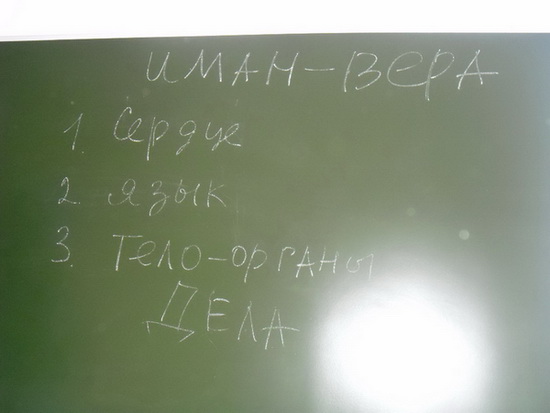 ИМАН-ВЕРА
1. Сердце
2. язык
3. Тело-органы
ДЕЛА